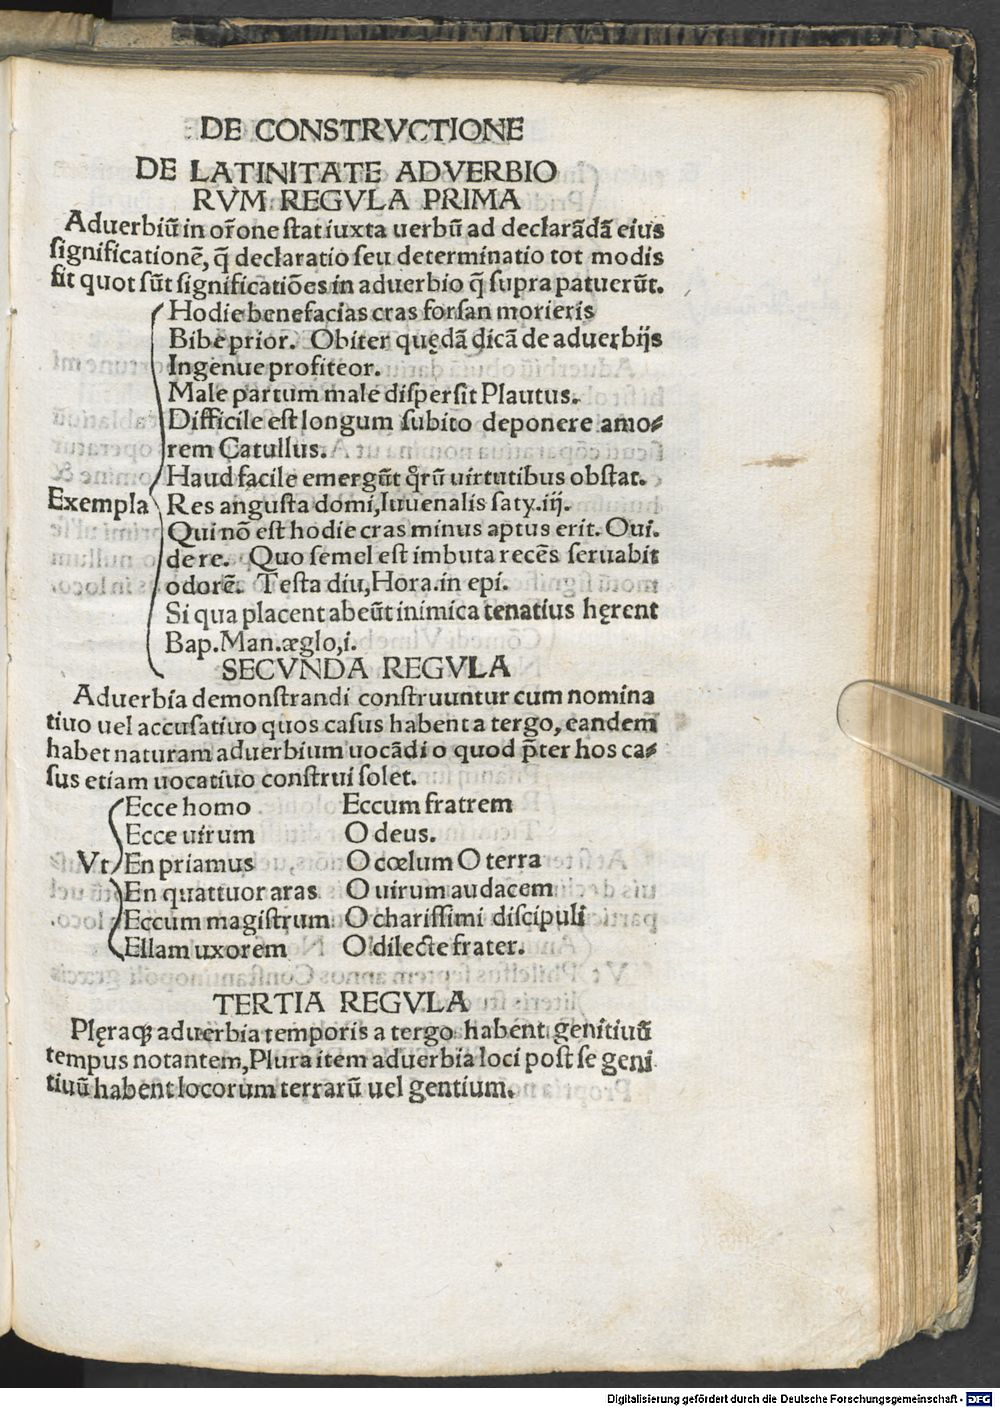 DE CONSTRVCTIONE
DE LATINITATE ADVERBIO
RVM REGVLA PRIMA
Aduerbiū in or̄one stat iuxta uerbū ad declarādā eius
significationē, q̄ declaratio seu determinatio tot modis
fit quot sūt significatiōes in aduerbio q̄ supra patuerūt.
Hodie benefacias cras forsan morieris
Bibe prior. Obiter quędā dicā de aduerbijs
Ingenue profiteor.
Male partum male dispersit Plautus.
Difficile est longum subito deponere amo⸗
rem Catullus.
Haud facile emergūt qr̄ū uirtutibus obstat.
Exempla Res angusta domi, Iuuenalis saty.iij.
Qui nō est hodie cras minus aptus erit. Oui.
de re. Quo semel est imbuta recēs seruabit
odorē. Testa diu, Hora.in epi.
Si qua placent abeūt inimica tenatius hęrent
Bap.Man.æglo,i.
SECVNDA REGVLA
Aduerbia demonstrandi construuntur cum nomina
tiuo uel accusatiuo quos casus habent a tergo, eandem
habet naturam aduerbium uocādi o quod p̄ter hos ca⸗
sus etiam uocatiuo construi solet.
Ecce homo Eccum fratrem
Ecce uirum O deus.
Vt En priamus O cœlum O terra
En quattuor aras O uirum audacem
Eccum magistrum O charissimi discipuli
Ellam uxorem O dilecte frater.
TERTIA REGVLA
Plęraqꝫ aduerbia temporis a tergo habent genitiuū
tempus notantem, Plura item aduerbia loci post se geni
tiuū habent locorum terrarū uel gentium.
Digitalisierung gefördert durch die Deutsche Forschungsgemeinschaft - DFG